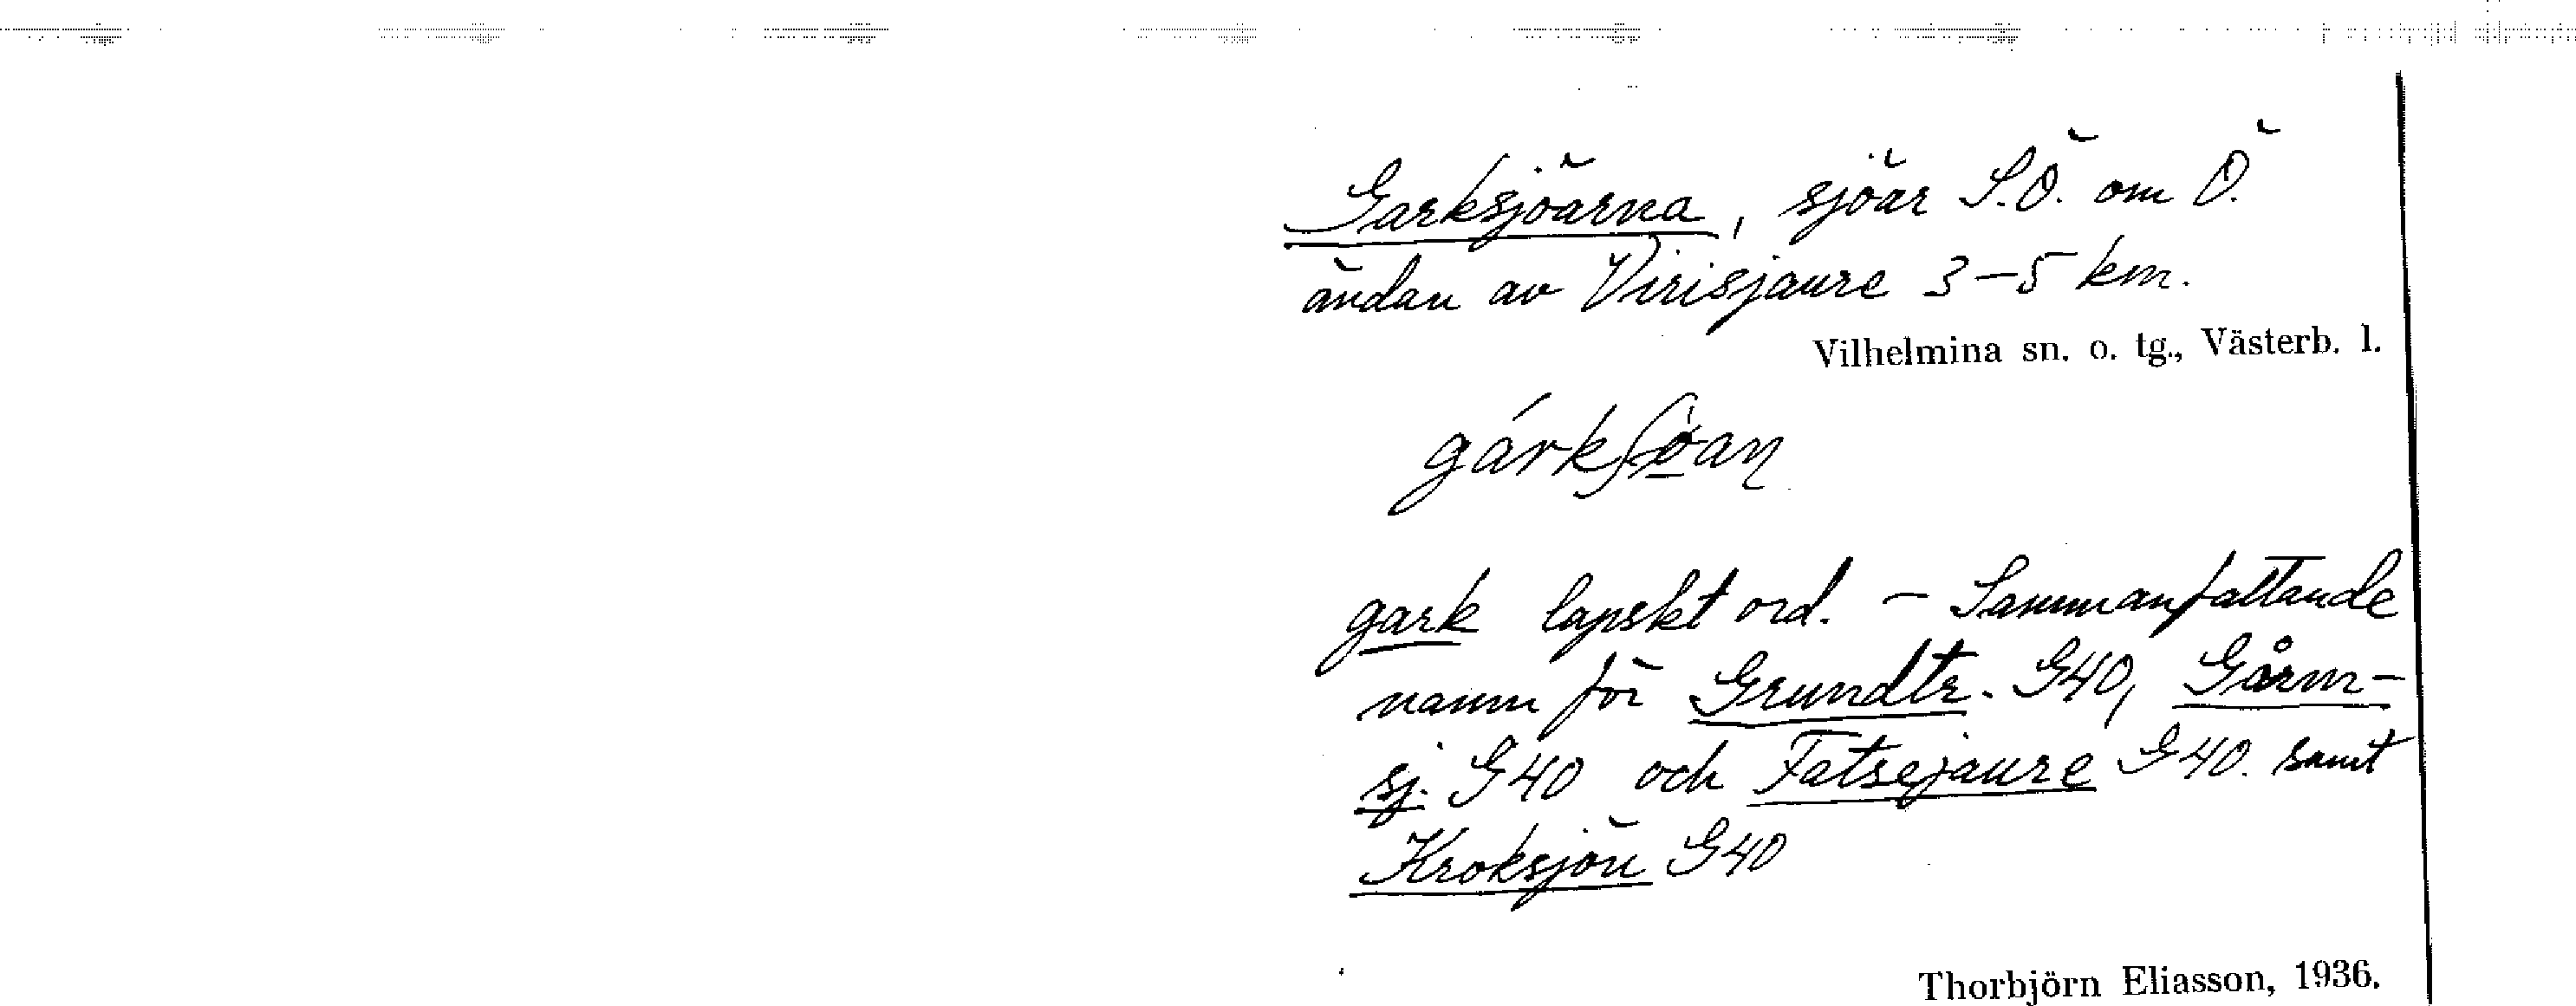 Garksjöarna, sjöar S.Ö. om Ö.
ändan av Virisjaure 3–5 km.
Vilhelmina sn. o. tg., Västerb. l.
gark lapskt ord. – Sammanfattande
namn för Grundtr. G40, Gårm-
sj. G40 och Fatsejaure G40. samt
Kroksjön G40
Thorbjörn Eliasson, 1936.